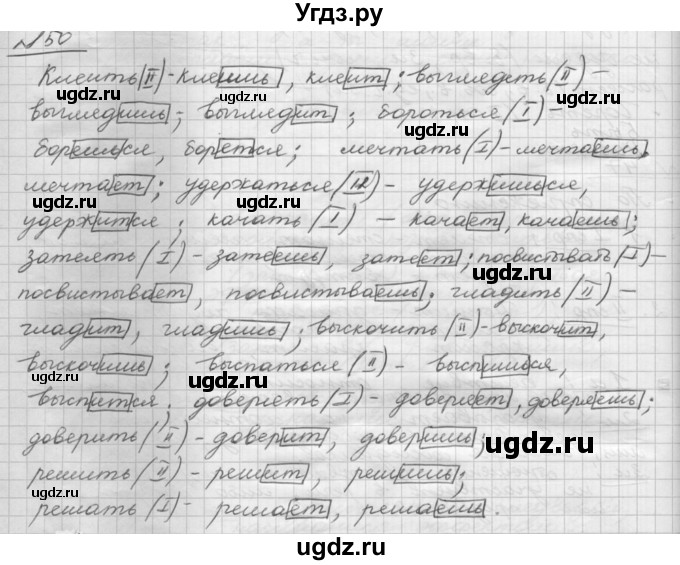 Угдз.ру
№50
Клеить(II)-клеишь, клеит; выглядеть(II)-
выглядишь; выглядит; бороться(I)-
борешься, борется; мечтать(I)-мечтаешь,
мечтает; удержаться(II)- удержишься,
удержится; качать(I) - качает, качаешь;
затеять(I)-затеешь, затеет; посвистывать(I)-
посвистывает, посвистываешь; гладить(II)-
гладит, гладишь; выскочить(II)-выскочит,
выскочишь; выспаться(II)- выспишься,
выспится; доверять(I)- доверяет, доверяешь;
доверить(II)-доверит, доверишь;
решить(II)-решит, решишь;
решать(I)-решает, решаешь.
ugdz.ru
ugdz.ru
ugdz.ru
ugdz.ru
ugdz.ru
ugdz.ru
ugdz.ru
ugdz.ru
ugdz.ru
ugdz.ru
ugdz.ru
ugdz.ru